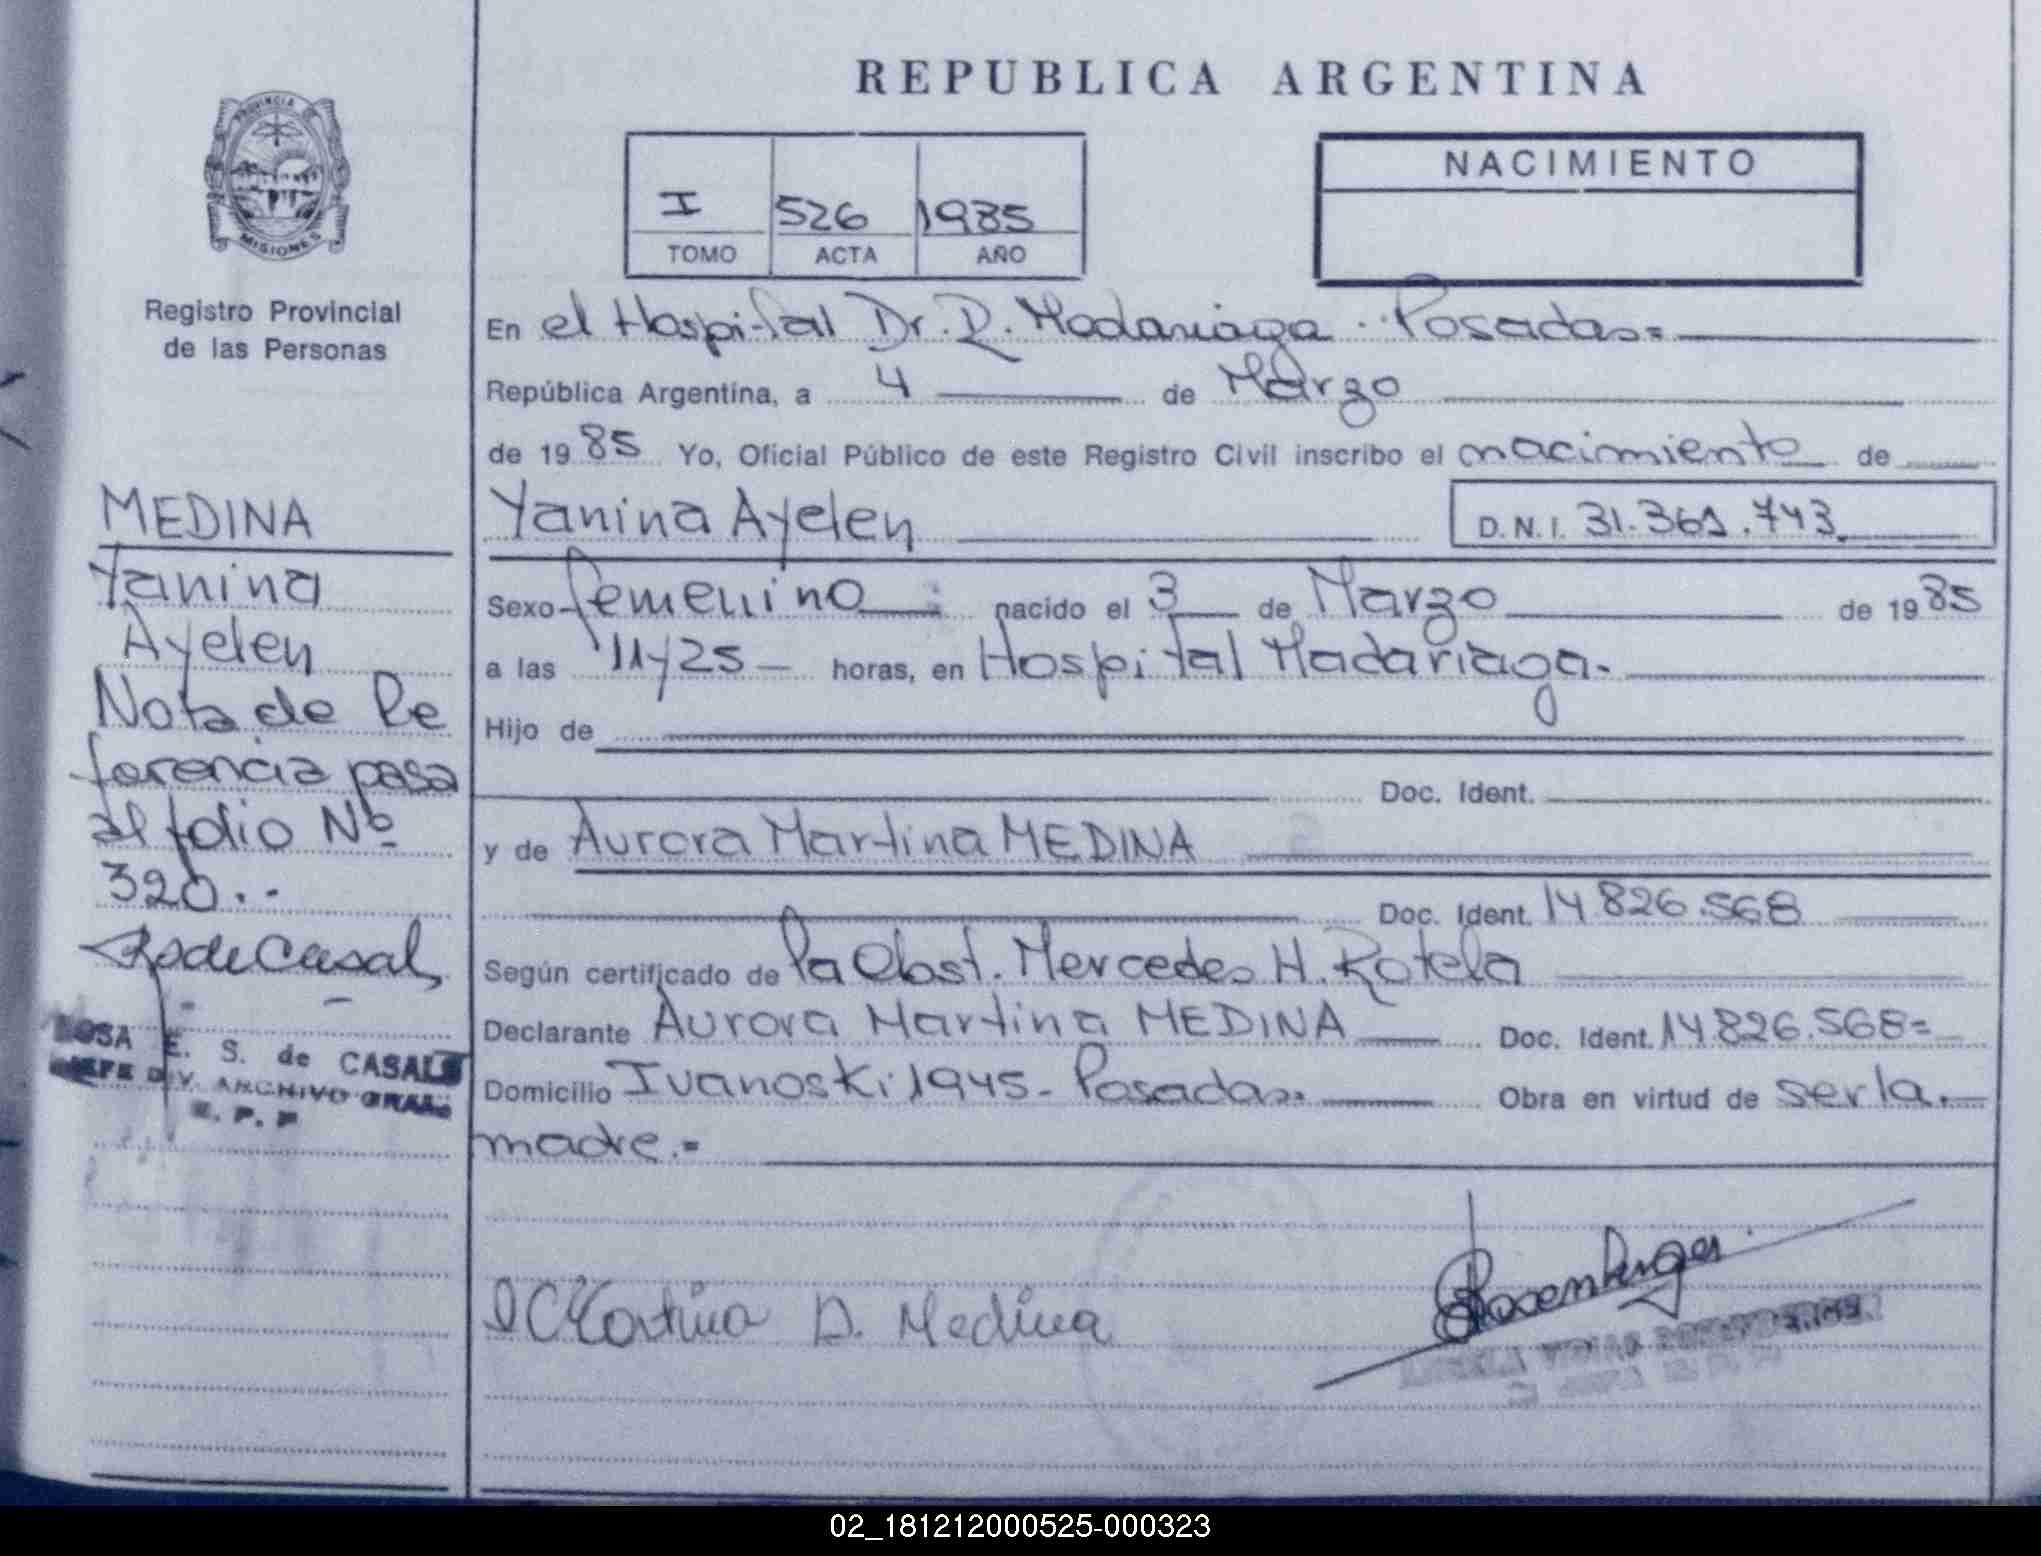 REPUBLICA ARGENTINA
PROVINCIA
MISIONES
Registro Provincial
de las Personas
I 526 1985
TOMO ACTA AÑO
NACIMIENTO
En el Hospital Dr. R. Madariaga - Posadas=
República Argentina, a 4 de Marzo
de 1985 Yo, Oficial Público de este Registro Civil inscribo el nacimiento de
Yanina Ayelen D.N.I. 31.361.743
Sexo femenino nacido el 3 de Marzo de 1985
a las 11/25 horas, en Hospital Madariaga.
Hijo de
Doc. Ident.
y de Aurora Martina MEDINA
Doc. Ident. 14.826.568
Según certificado de la Obst. Mercedes H. Rotela
Declarante Aurora Martina MEDINA Doc. Ident. 14.826.568=
Domicilio Ivanoski 1945 - Posadas. Obra en virtud de ser la
madre.=
MEDINA
Yanina
Ayelen
Nota de Re
ferencia pasa
al folio Nº
320..
RsdeCasal
ROSA E. S. de CASALS
JEFE DIV. ARCHIVO GRAL.
R. P. P
Martina D. Medina
02_181212000525-000323